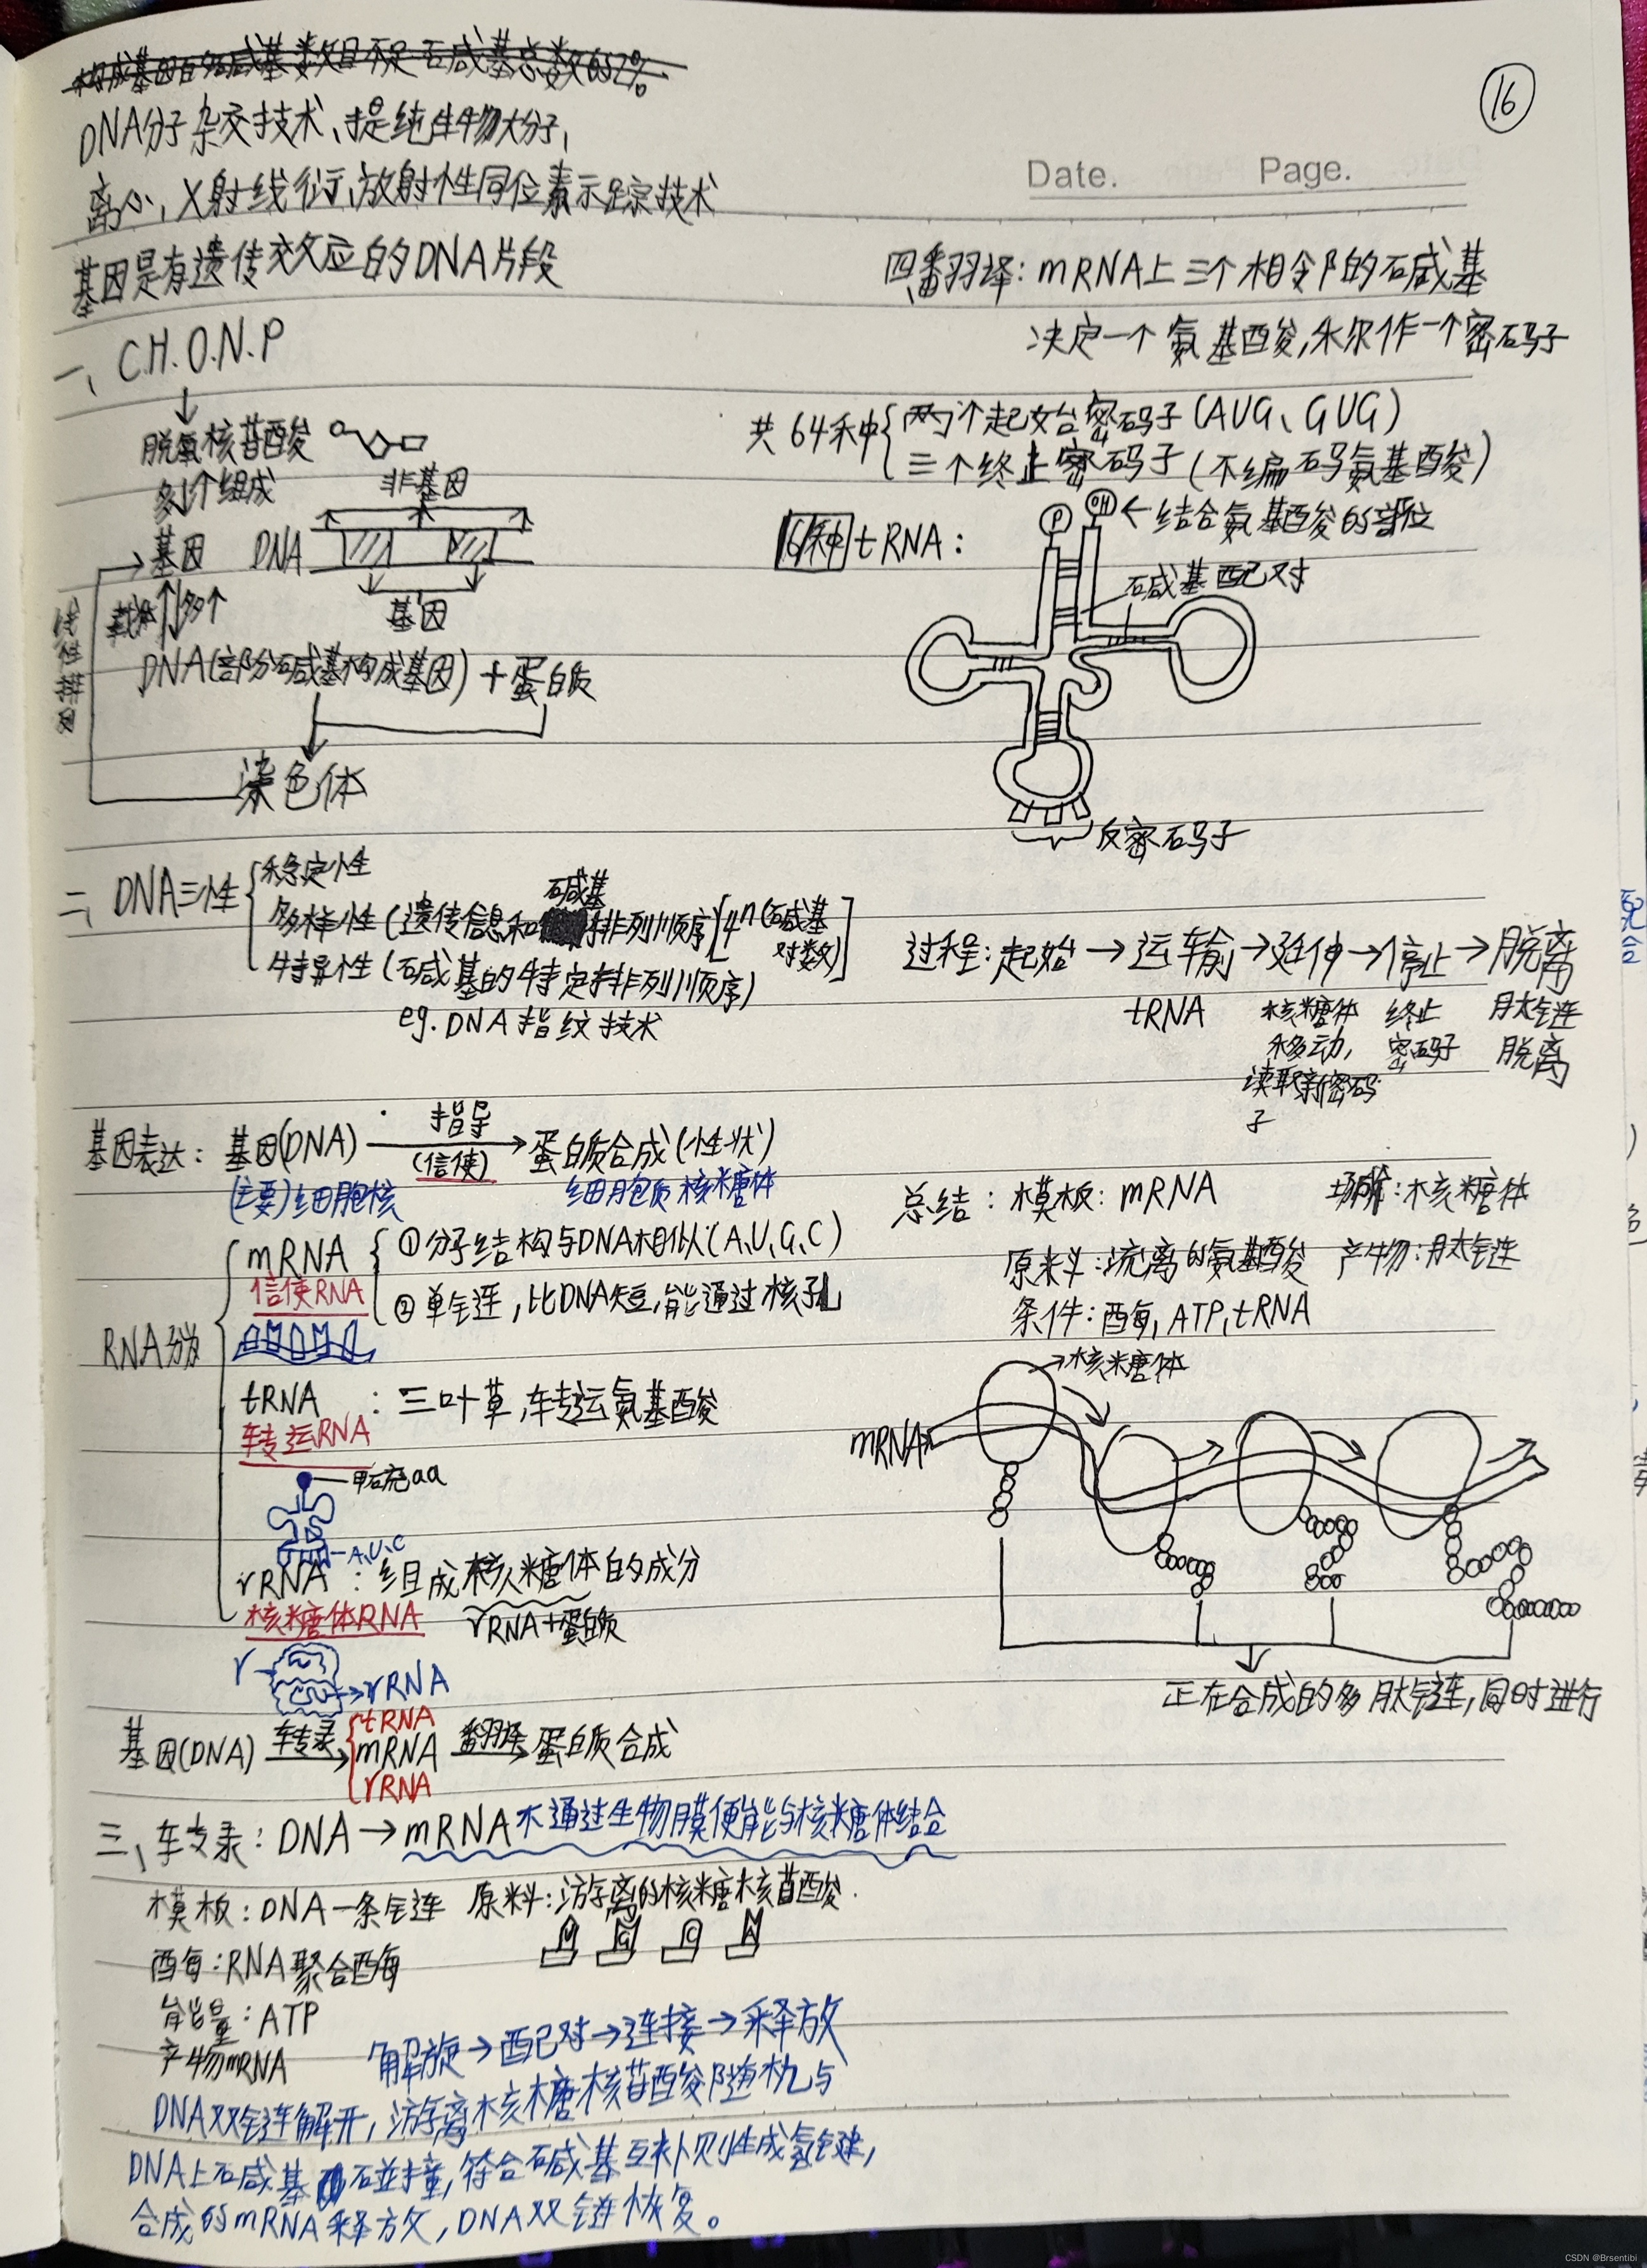 构成基因的碱基数目不足碱基总数的2%。
16
DNA分子杂交技术、提纯生物大分子,
离心, X射线衍, 放射性同位素示踪技术
Date. Page.
基因是有遗传效应的DNA片段
一、C.H.O.N.P
脱氧核苷酸
多个组成
非基因
基因
DNA
载体
多个
基因
线性排列
DNA(部分碱基构成基因)+蛋白质
染色体
二、DNA三性
稳定性
碱基
多样性(遗传信息和排列顺序)[4ⁿ(碱基对数)]
特异性(碱基的特定排列顺序)
eg.DNA指纹技术
基因表达: 基因(DNA) 指导 (信使) 蛋白质合成(性状)
(主要)细胞核 细胞质核糖体
RNA分为
mRNA ①分子结构与DNA相似(A、U、G、C)
信使RNA ②单链,比DNA短,能通过核孔
tRNA : 三叶草,转运氨基酸
转运RNA
甲硫aa
A、U、C
rRNA : 组成核糖体的成分
核糖体RNA rRNA+蛋白质
r
rRNA
tRNA
基因(DNA) 转录 mRNA 翻译 蛋白质合成
rRNA
三、转录: DNA→mRNA不通过生物膜便能与核糖体结合
模板: DNA一条链 原料: 游离的核糖核苷酸.
U G C A
酶: RNA聚合酶
能量: ATP
产物mRNA
解旋→配对→连接→释放
DNA双链解开, 游离核糖核苷酸随机与
DNA上碱基碰撞,符合碱基互补则生成氢键,
合成的mRNA释放,DNA双链恢复。
四、翻译: mRNA上三个相邻的碱基
决定一个氨基酸,称作一个密码子
共64种
两个起始密码子(AUG、GUG)
三个终止密码子(不编码氨基酸)
61种tRNA:
P OH ←结合氨基酸的部位
碱基配对
反密码子
过程: 起始→运输→延伸→停止→脱离
tRNA 核糖体 终止 肽链
移动, 密码子 脱离
读取新密码
子
总结: 模板: mRNA 场所: 核糖体
原料: 流离的氨基酸 产物: 肽链
条件: 酶, ATP, tRNA
核糖体
mRNA
正在合成的多肽链,同时进行
CSDN @Brsentibi